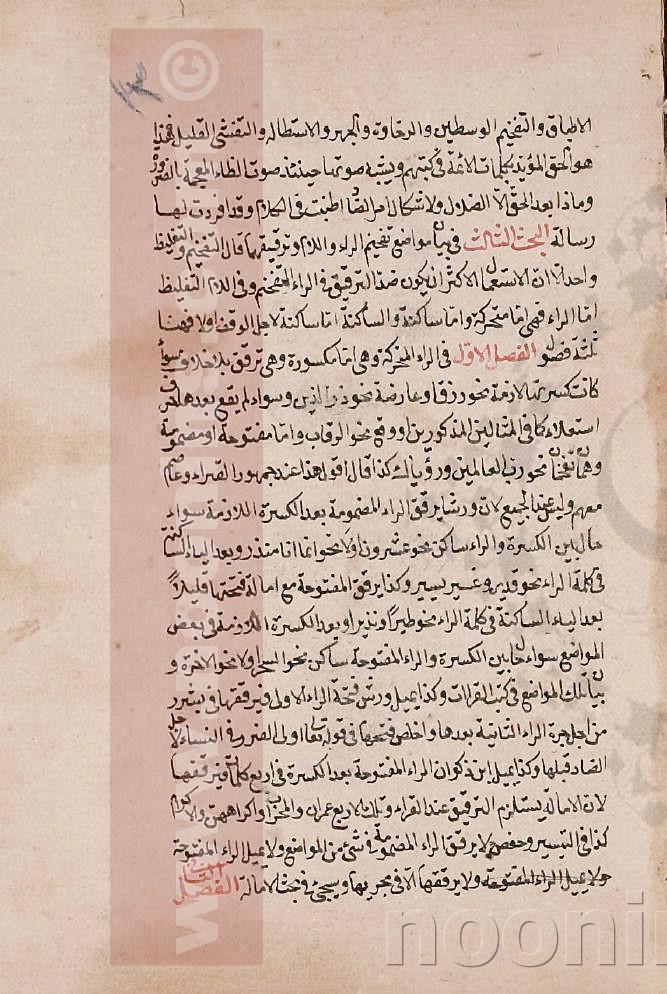 الاطباق والتفخيم الوسطين والرخاوة والجهر والاستطالة والتفشى القليل فهذا
هو الحق المؤيد بكلمات الائمة فى كتبهم ويشبه صوتها حينئذ صوت الظاء المعجمة بالضرورة
وماذا بعد الحق الا الضلال ولاشكال امر الضاد اطنبت فى الكلام وقد افردت لها
رسالة البحث الثالث فى بيان مواضع تفخيم الراء واللام وترقيقهما قال التفخيم والتغليظ
واحد الا ان الاستعمال الاكثر ان يكون ضد الترقيق فى الراء التفخيم وفى اللام التغليظ
امّا الراء فهى امّا متحركة وامّا ساكنة والساكنة امّا ساكنة لاجل الوقف اولا فهنا
ثلثة فصول الفصل الاوّل فى الراء المتحركة وهى امّا مكسورة وهى ترقق بلا خلاف سواء
كانت كسرتها لازمة نحو رزقا وعارضة نحو وذر الذين وسواء لم يقع بعدها حرف
استعلاء كما فى المثالين المذكورين او وقع نحو الرقاب وامّا مفتوحة او مضمومة
وهما تفخمان نحو رب العالمين ورؤياك كذا قال اقول هذا عند جمهور القراء وعاصم
معهم وليس عند الجميع لان ورشا يرقق الراء المضمومة بعد الكسرة اللازمة سواء
حال بين الكسرة والراء ساكن نحو عشرون اولا نحو انما انا منذر وبعد الياء الساكنة
فى كلمة الراء نحو قدير وغير يسير وكذا يرقق المفتوحة مع امالة فتحتها قليلاً
بعد الياء الساكنة فى كلمة الراء نحو طيراً ونذيرا وبعد الكسرة اللازمة فى بعض
المواضع سواء حال بين الكسرة والراء المفتوحة ساكن نحو السحر اولا نحو الاخرة و
بيان تلك المواضع فى كتب القراات وكذا يميل ورش فتحة الراء الاولى فيرققها فى بشرر
من اجل جرة الراء الثانية بعدها واخلص فتحها فى قوله تعالى اولى الضرر فى النساء لاجل
الضاد قبلها وكذا يميل ابن ذكوان الراء المفتوحة بعد الكسرة فى اربع كلمات فيرققها
لان الامالة يستلزم الترقيق عند القراء وتلك الاربع عمران والمحراب واكراههن والاكرام
كذا فى التيسير وحفص لا يرقق الراء المضمومة فى شئ من المواضع ولا يميل الراء المفتوحة
ولا يميل الراء المفتوحة ولا يرققها الا فى مجريها وسيجئ فى بحث الامالة الفصل الثانى
nooni